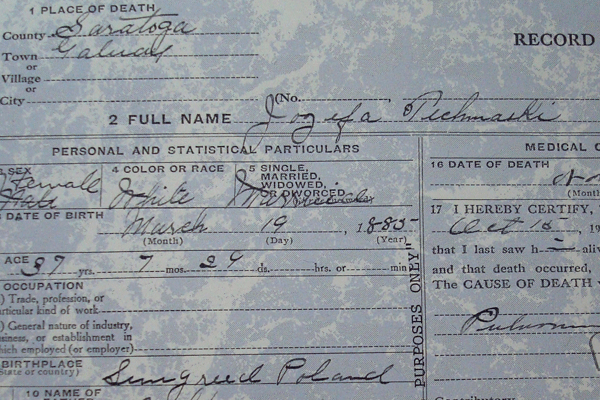 1 PLACE OF DEATH
County Saratoga
Town Galway
or
Village
or
City
RECORD
(No.
2 FULL NAME Jozefa Pechmaski
PERSONAL AND STATISTICAL PARTICULARS
SEX Female
4 COLOR OR RACE White
5 SINGLE,
MARRIED,
WIDOWED,
OR DIVORCED
DATE OF BIRTH March 19, 1885
(Month) (Day) (Year)
AGE 37 yrs. 7 mos. 29 ds. hrs. or min
OCCUPATION
) Trade, profession, or
articular kind of work
) General nature of industry,
siness, or establishment in
hich employed (or employer)
BIRTHPLACE
State or country) Poland
10 NAME OF
PURPOSES ONLY"
MEDICAL C
16 DATE OF DEATH
(Month
17 I HEREBY CERTIFY,
Oct 15, 19
that I last saw h aliv
and that death occurred,
The CAUSE OF DEATH
Contributory